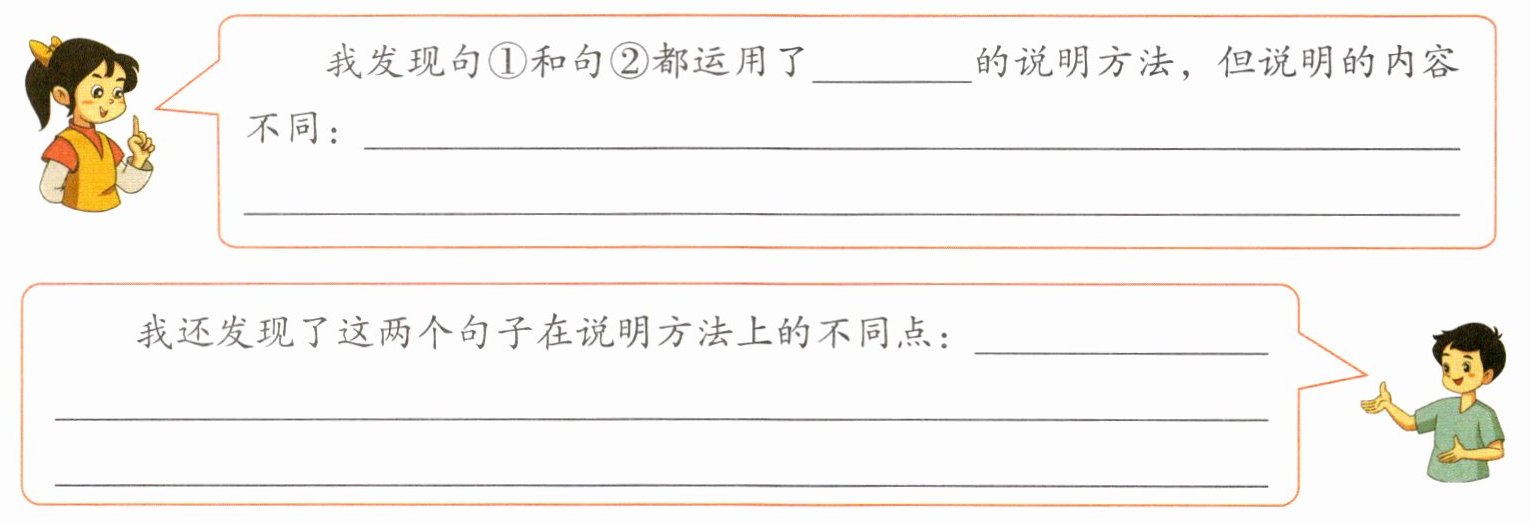 我发现句①和句②都运用了________的说明方法，但说明的内容
不同：
我还发现了这两个句子在说明方法上的不同点：